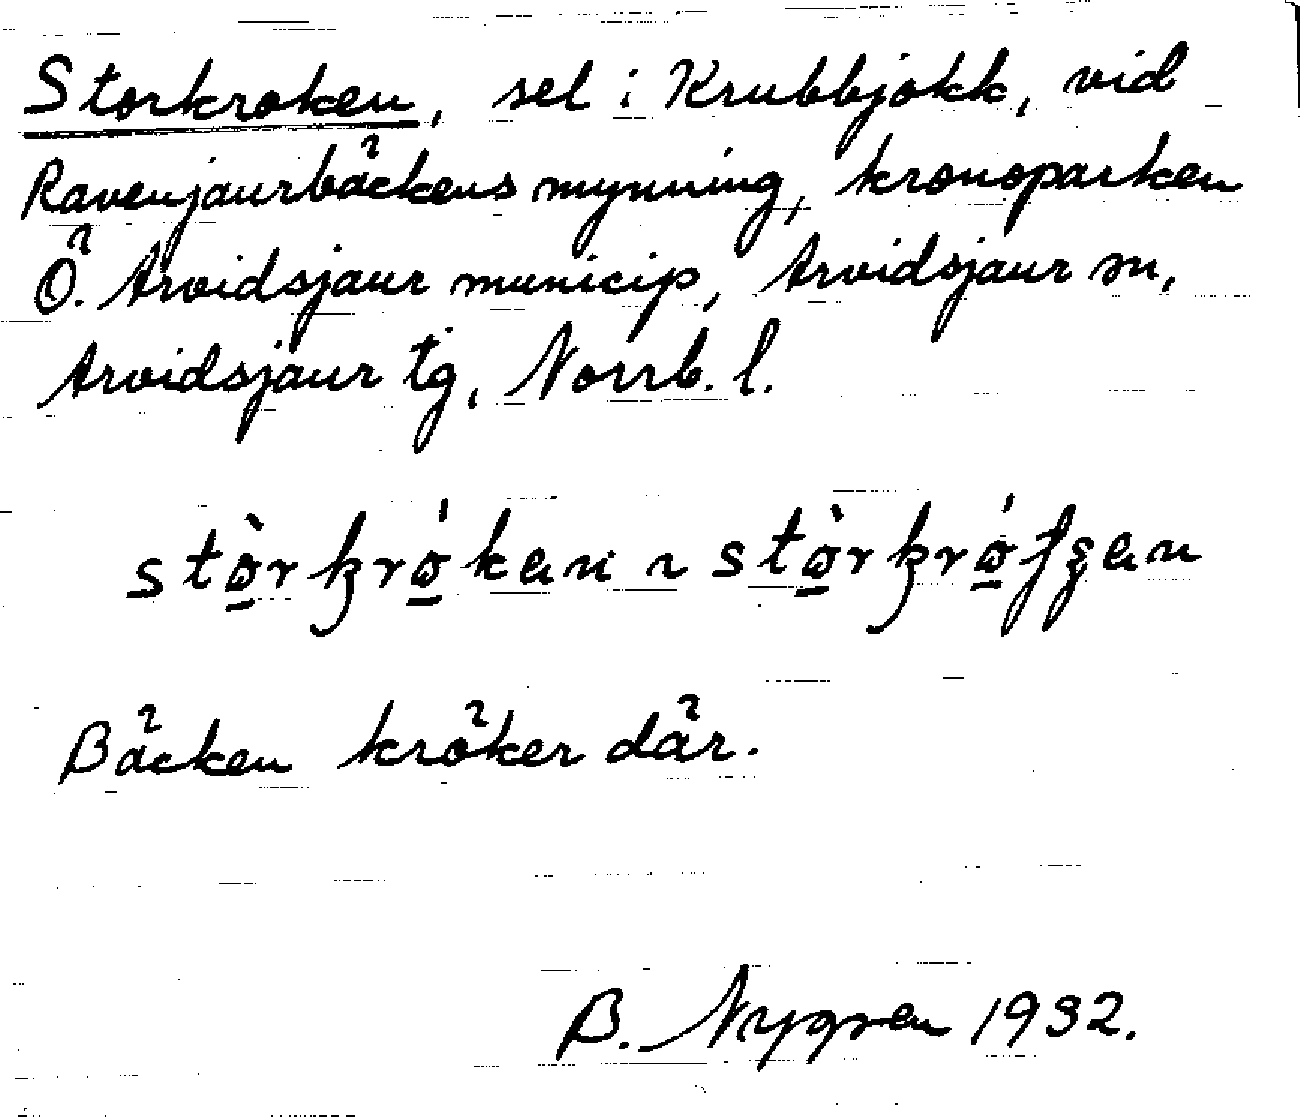 Storkroken, sel i Krubbjokk, vid
Ravenjaurbäckens mynning, kronoparken
Ö. Arvidsjaur municip, Arvidsjaur sn,
Arvidsjaur tg, Norrb. l.
Bäcken kröker där.
B. Nygren 1932.